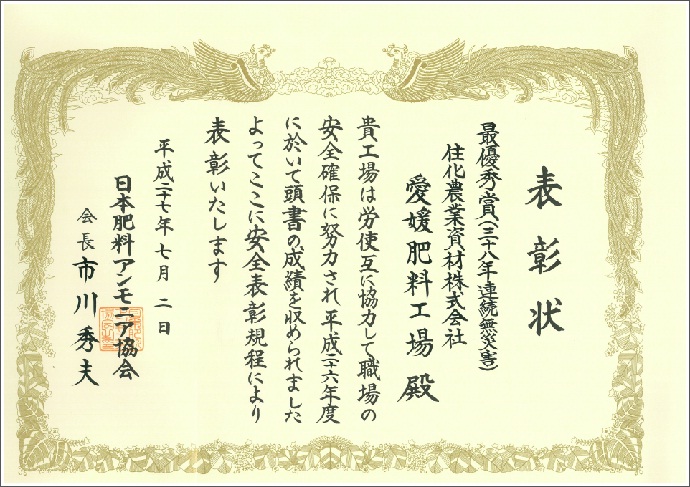 表彰状
最優秀賞(三十八年連続無災害)
住化農業資材株式会社
愛媛肥料工場殿
貴工場は労使互に協力して職場の
安全確保に努力され平成二十六年度
に於いて頭書の成績を収められました
よってここに安全表彰規程により
表彰いたします
平成二十七年七月二日
日本肥料アンモニア協会
会長市川秀夫